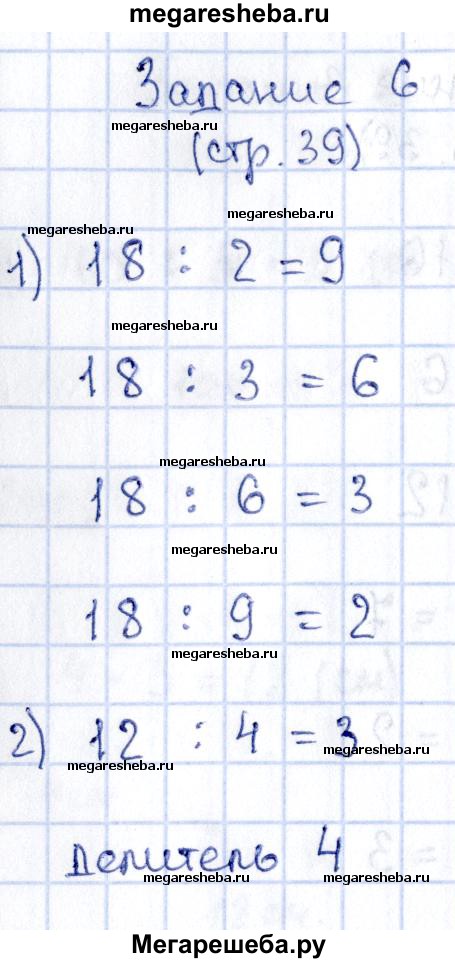 megaresheba.ru
Задание 6
megaresheba.ru
(стр. 39)
megaresheba.ru
megaresheba.ru
1) 18 : 2 = 9
megaresheba.ru
18 : 3 = 6
megaresheba.ru
18 : 6 = 3
megaresheba.ru
18 : 9 = 2
megaresheba.ru
2) 12 : 4 = 3
megaresheba.ru megaresheba.ru
Делитель 4
megaresheba.ru megaresheba.ru
Мегарешеба.ру